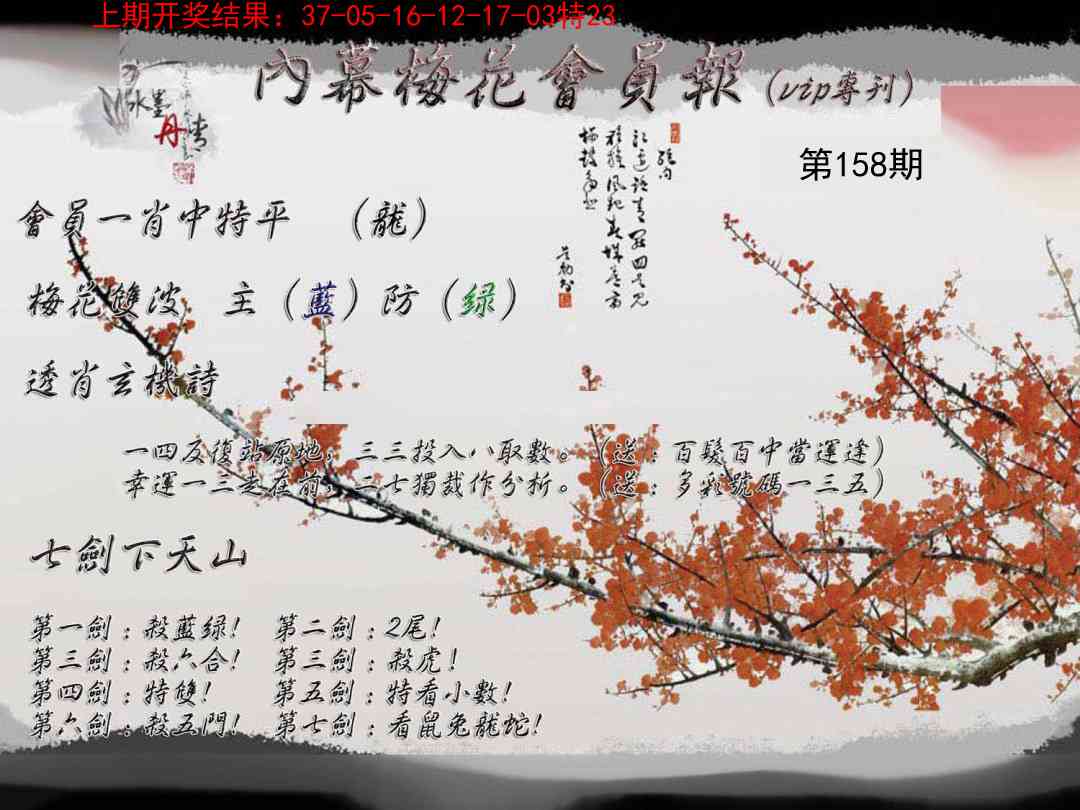 上期开奖结果：37-05-16-12-17-03特23
內幕梅花會員報（vip專刊）
水墨
丹情
第158期
會員一肖中特平 （龍）
梅花雙波 主（藍）防（绿）
透肖玄機詩
一四反復站原地，三三投入八取數。（送：百髮百中當運達）
幸運一三走在前，二七獨裁作分析。（送：多彩號碼一三五）
七劍下天山
第一劍：殺藍绿！ 第二劍：2尾！
第三劍：殺六合！ 第三劍：殺虎！
第四劍：特雙！ 第五劍：特看小數！
第六劍：殺五門！ 第七劍：看鼠兔龍蛇！